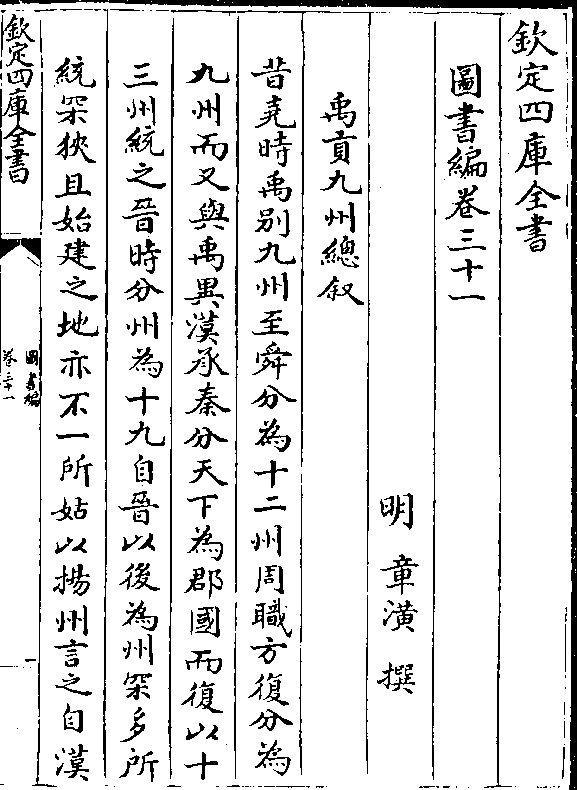 欽定四庫全書
圖書編卷三十一
明 章潢 撰
禹貢九州總叙
昔堯時禹別九州至舜分為十二州周職方復分為
九州而又與禹異漢承秦分天下為郡國而復以十
三州統之晉時分州為十九自晉以後為州冞多所
統冞狹且始建之地亦不一所姑以揚州言之自漢
欽定四庫全書
圖書編
卷三十一
一